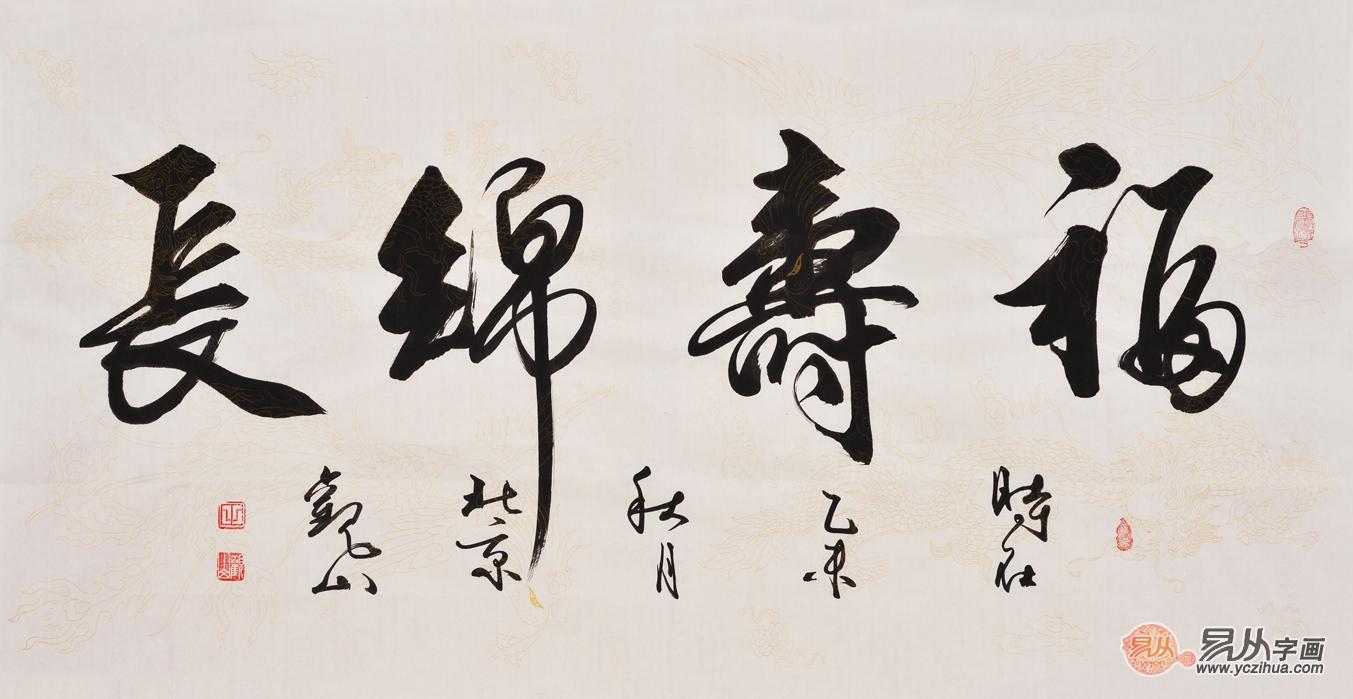 福壽綿長
時在
乙未
秋月
北京
觀山
易从
yejon
易从字画
www.yczihua.com